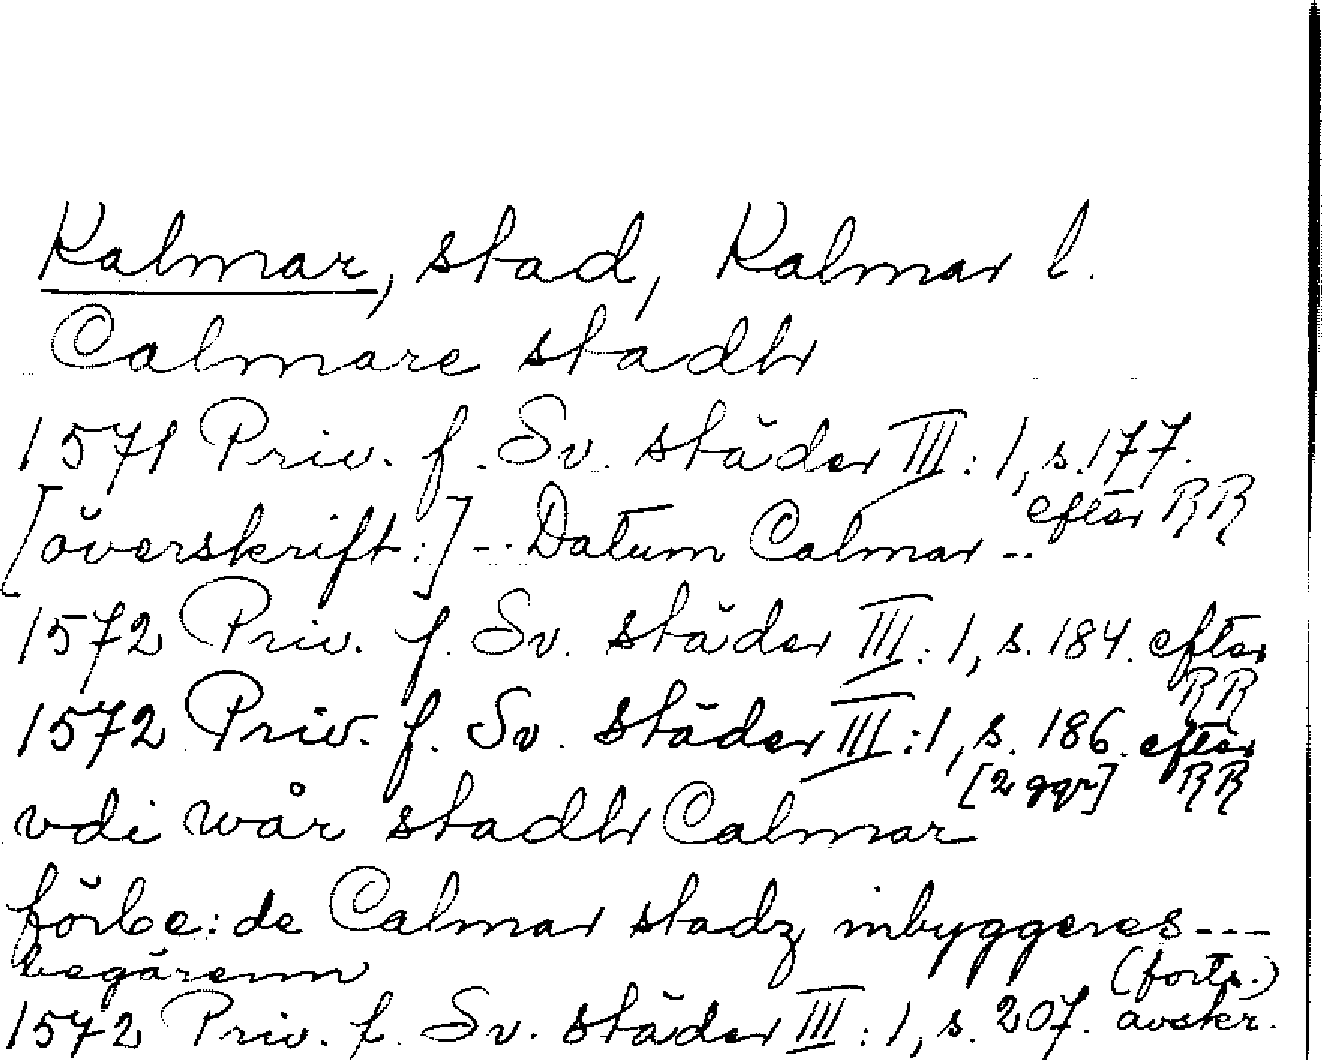 Kalmar, stad, Kalmar l.
Calmare stadh
1571 Priv. f. Sv. städer III: 1, s. 177.
efter RR
[överskrift:] -- Datum Calmar --
1572 Priv. f. Sv. städer III: 1, s. 184. efter
RR
1572 Priv. f. Sv. städer III: 1, s. 186. efter
[2 ggr] RR
vdi wår stadh Calmar
förbe: de Calmar stadz inbyggeres ---
begärenn (forts.)
1572 Priv. f. Sv. städer III: 1, s. 207. avskr.